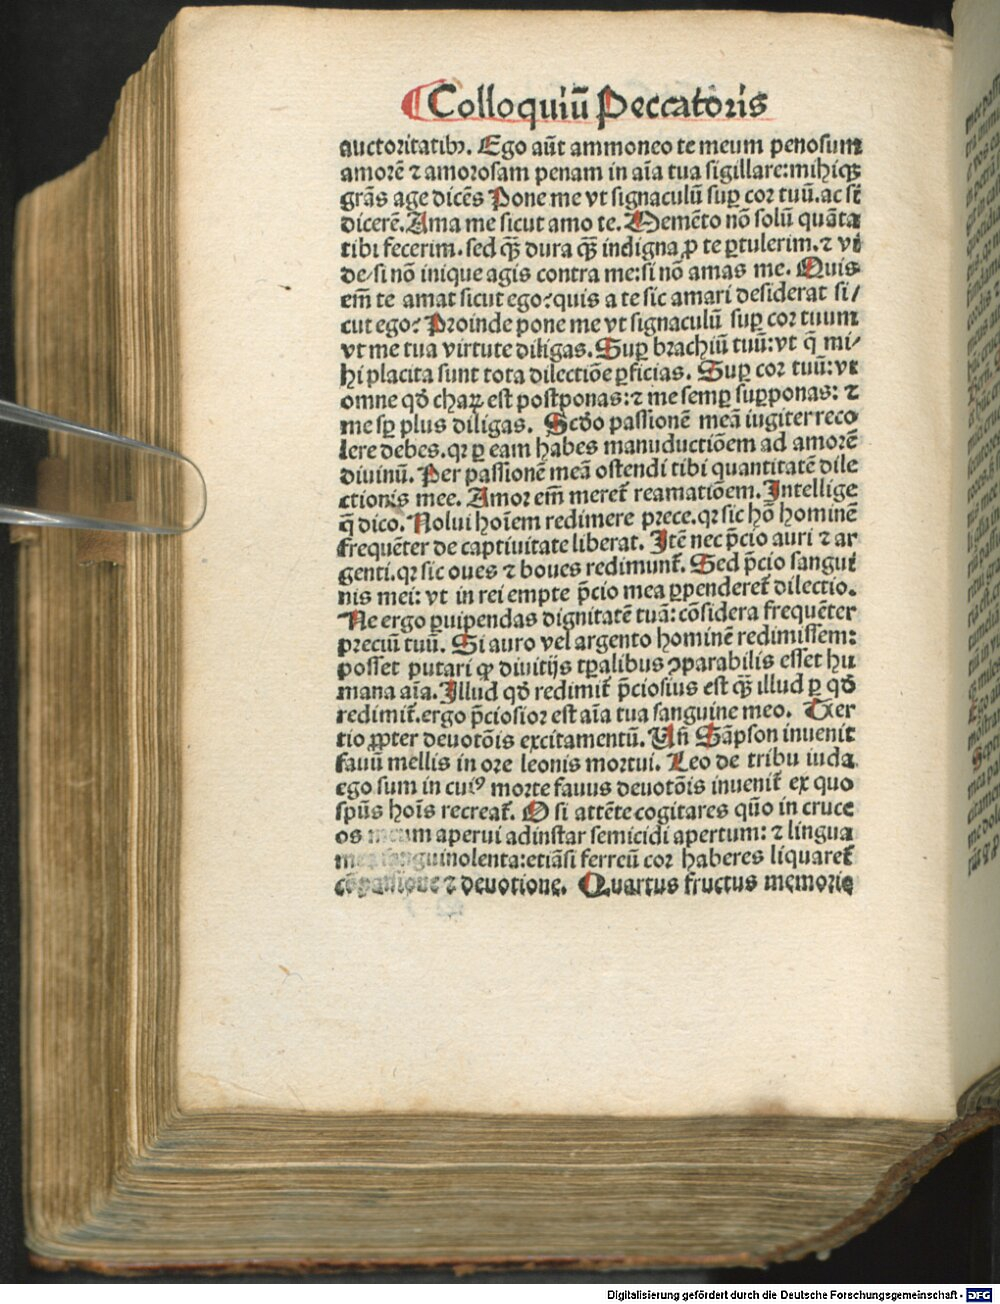 Colloquiū Peccatoris
auctoritatibꝰ. Ego aūt ammoneo te meum penosum
amorē ⁊ amorosam penam in aīa tua sigillare: mihiqꝫ
grās age dicēs Pone me vt signaculū suꝑ cor tuū. ac si
dicerē. Ama me sicut amo te. Memēto nō solū quāta
tibi fecerim. sed qꝫ̄ dura qꝫ̄ indigna ꝓ te ꝑtulerim. ⁊ vi
de si nō inique agis contra me: si nō amas me. Quis
em̄ te amat sicut ego? quis a te sic amari desiderat si/
cut ego? Proinde pone me vt signaculū suꝑ cor tuum
vt me tua virtute diligas. Suꝑ brachiū tuū: vt q̄ mi/
hi placita sunt tota dilectiōe ꝑficias. Suꝑ cor tuū: vt
omne qđ charꝝ est postponas: ⁊ me semꝑ suꝑponas: ⁊
me sꝑ plus diligas. Scđo passionē meā iugiter reco
lere debes. qꝛ ꝑ eam habes manuductiōem ad amorē
diuinū. Per passionē meā ostendi tibi quantitatē dile
ctionis mee. Amor em̄ meret̄ reamatiōem. Intellige
q̄ dico. Nolui hoīem redimere prece. qꝛ sic hō hominē
frequēter de captiuitate liberat. Itē nec p̄cio auri ⁊ ar
genti. qꝛ sic oues ⁊ boues redimunt̄. Sed p̄cio sangui
nis mei: vt in rei empte p̄cio mea ꝑpenderet̄ dilectio.
Ne ergo ꝑuipendas dignitatē tuā: cōsidera frequēter
preciū tuū. Si auro vel argento hominē redimissem:
posset putari ꝙ diuitijs tꝑalibus ꝯparabilis esset hu
mana aīa. Illud qđ redimit̄ p̄ciosius est qꝫ̄ illud ꝑ qđ
redimit̄. ergo p̄ciosior est aīa tua sanguine meo. Ter
tio ꝓpter deuotōis excitamentū. Vn̄ Sāpson inuenit
fauū mellis in ore leonis mortui. Leo de tribu iuda
ego sum in cuiꝰ morte fauus deuotōis inuenit̄ ex quo
spūs hoīs recreat̄. O si attēte cogitares quō in cruce
os meum aperui ad instar semicidi apertum: ⁊ lingua
mea sanguinolenta: etiāsi ferreū cor haberes liquaret̄
cōpassione ⁊ deuotione. Quartus fructus memorie
Digitalisierung gefördert durch die Deutsche Forschungsgemeinschaft - DFG